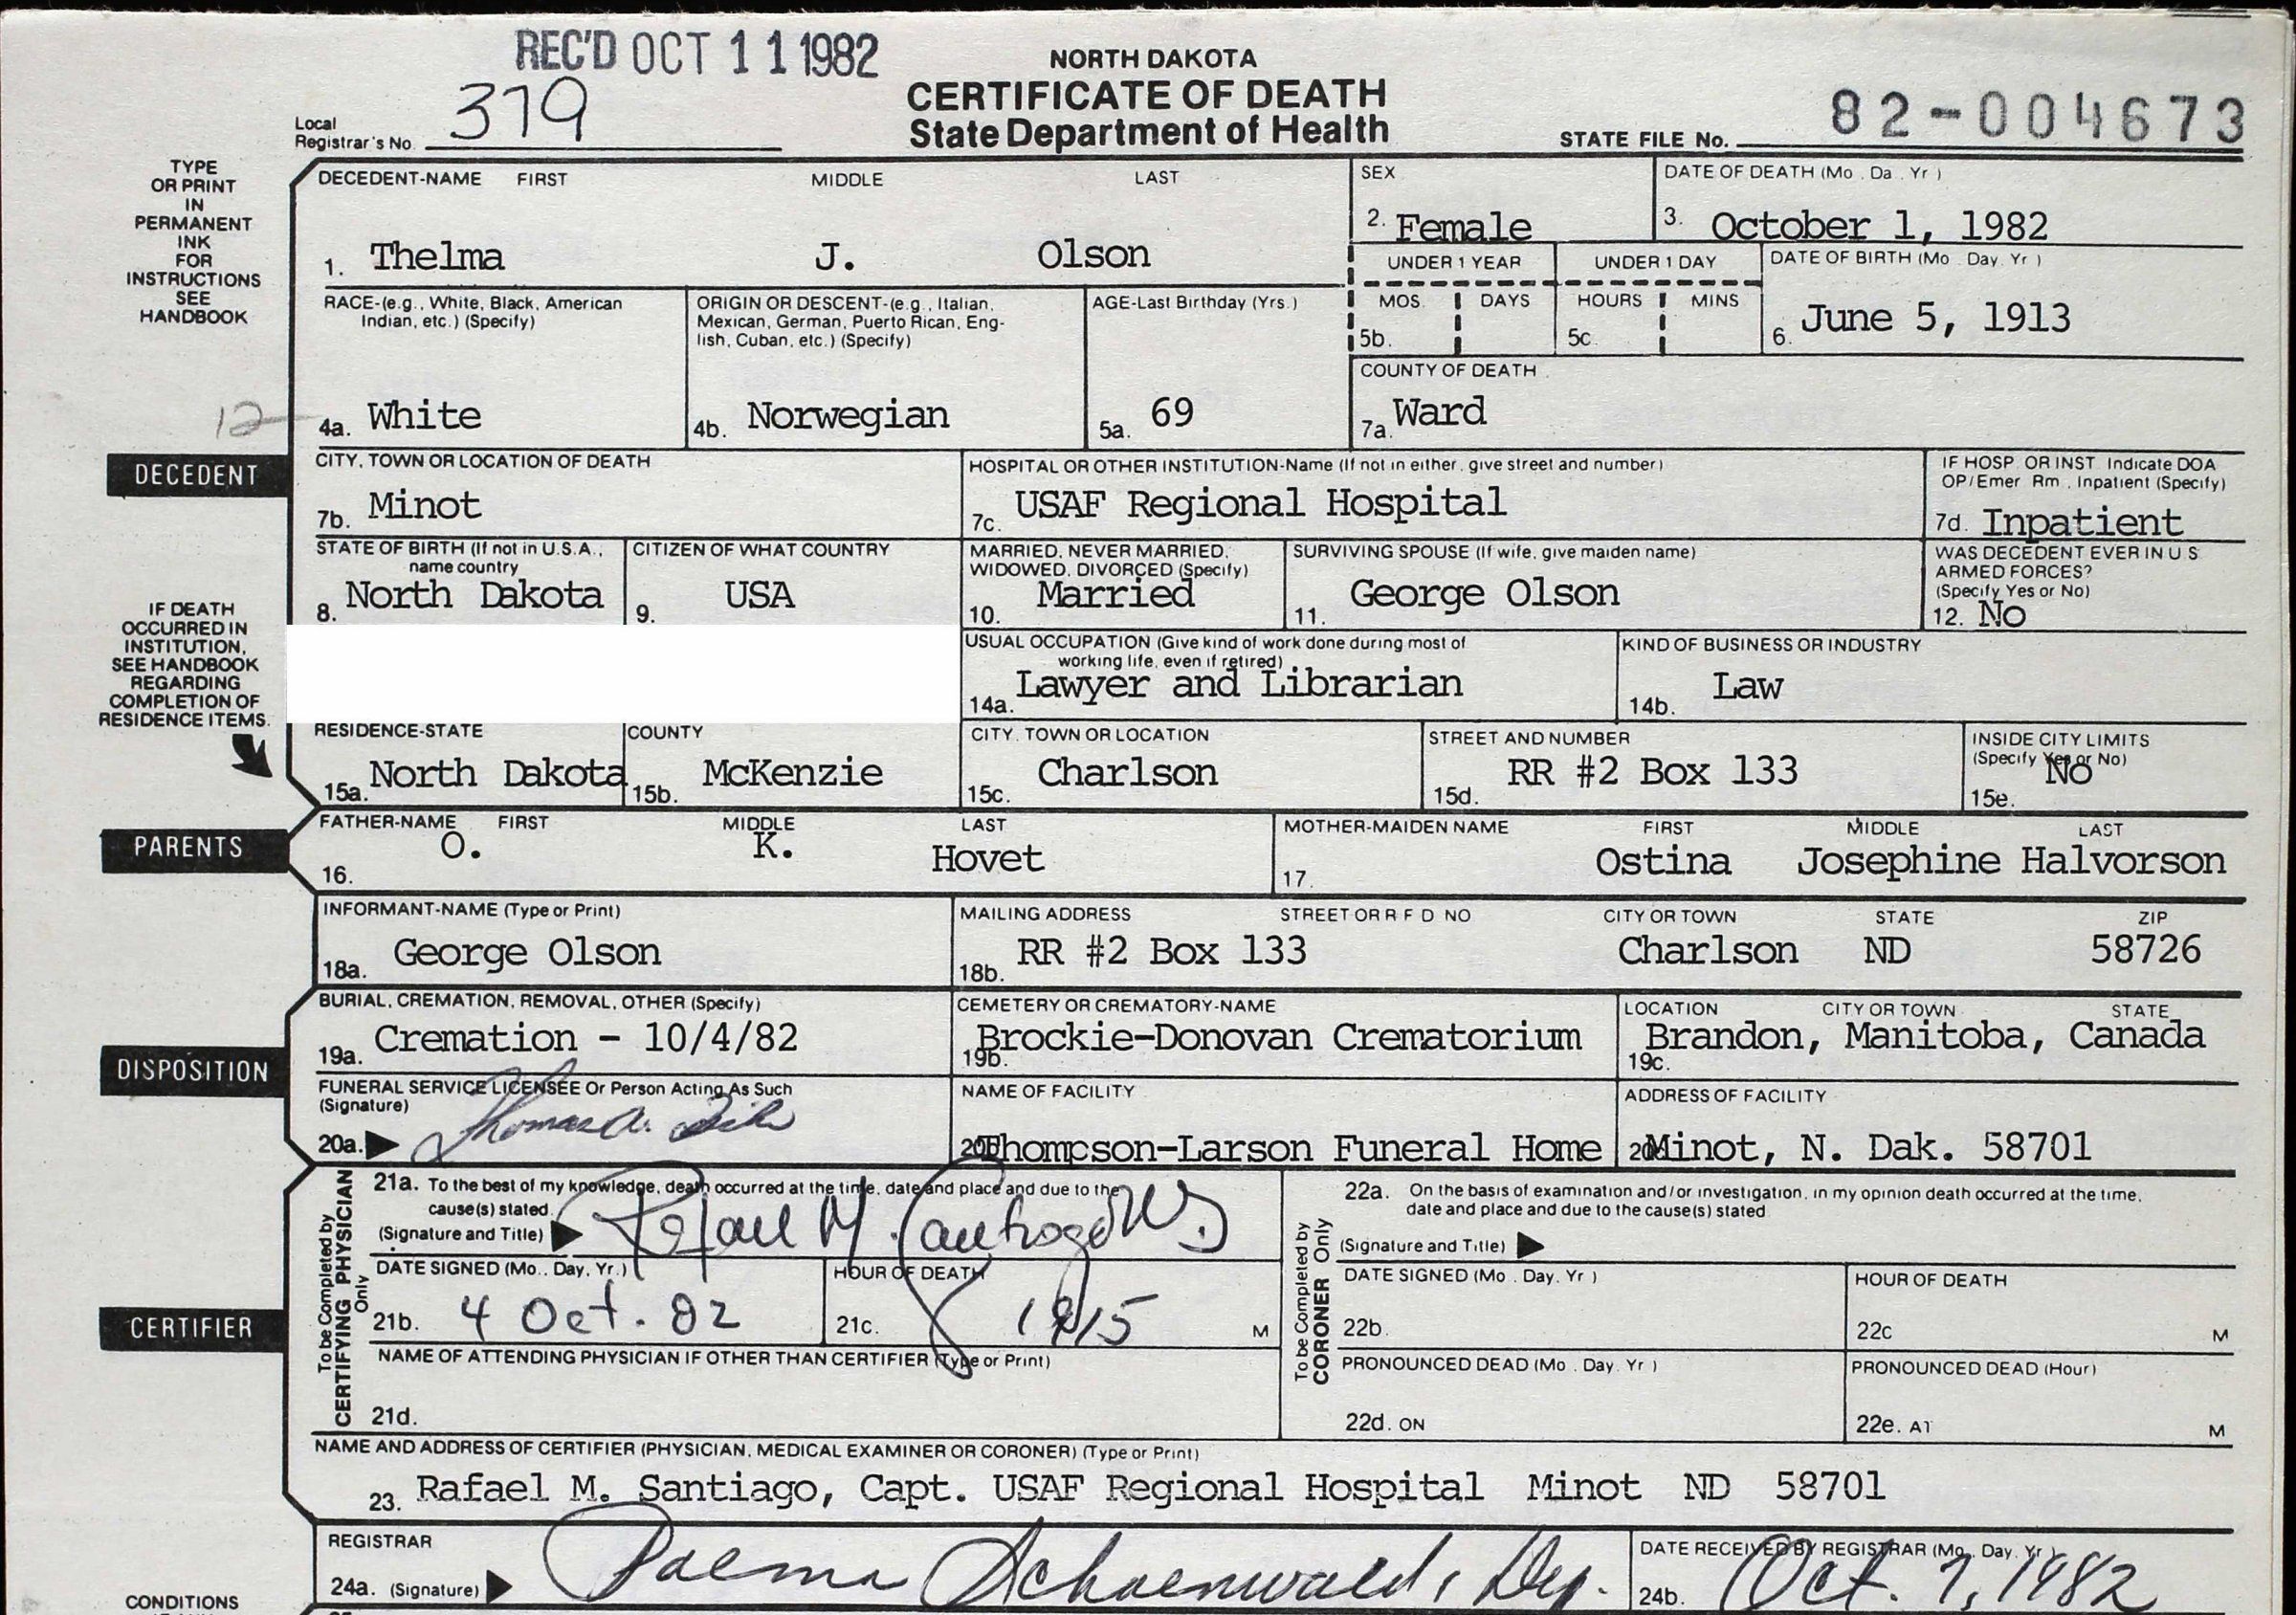 REC'D OCT 11 1982
NORTH DAKOTA
CERTIFICATE OF DEATH
State Department of Health
Local Registrar's No. 379
STATE FILE No. 82-004673
TYPE OR PRINT IN PERMANENT INK FOR INSTRUCTIONS SEE HANDBOOK
DECEDENT-NAME FIRST MIDDLE LAST
1. Thelma J. Olson
SEX
2. Female
DATE OF DEATH (Mo. Da. Yr.)
3. October 1, 1982
RACE-(e.g., White, Black, American Indian, etc.) (Specify)
4a. White
12
ORIGIN OR DESCENT-(e.g., Italian, Mexican, German, Puerto Rican, English, Cuban, etc.) (Specify)
4b. Norwegian
AGE-Last Birthday (Yrs.)
5a. 69
UNDER 1 YEAR
MOS. DAYS
5b.
UNDER 1 DAY
HOURS MINS
5c.
DATE OF BIRTH (Mo. Day. Yr.)
6. June 5, 1913
COUNTY OF DEATH
7a. Ward
DECEDENT
CITY, TOWN OR LOCATION OF DEATH
7b. Minot
HOSPITAL OR OTHER INSTITUTION-Name (If not in either, give street and number)
7c. USAF Regional Hospital
IF HOSP. OR INST. Indicate DOA OP/Emer. Rm., Inpatient (Specify)
7d. Inpatient
STATE OF BIRTH (If not in U.S.A., name country
8. North Dakota
CITIZEN OF WHAT COUNTRY
9. USA
MARRIED, NEVER MARRIED, WIDOWED, DIVORCED (Specify)
10. Married
SURVIVING SPOUSE (If wife, give maiden name)
11. George Olson
WAS DECEDENT EVER IN U S ARMED FORCES? (Specify Yes or No)
12. No
IF DEATH OCCURRED IN INSTITUTION, SEE HANDBOOK REGARDING COMPLETION OF RESIDENCE ITEMS.
USUAL OCCUPATION (Give kind of work done during most of working life, even if retired)
14a. Lawyer and Librarian
KIND OF BUSINESS OR INDUSTRY
14b. Law
RESIDENCE-STATE
15a. North Dakota
COUNTY
15b. McKenzie
CITY, TOWN OR LOCATION
15c. Charlson
STREET AND NUMBER
15d. RR #2 Box 133
INSIDE CITY LIMITS (Specify Yes or No)
15e. No
PARENTS
FATHER-NAME FIRST MIDDLE LAST
16. O. K. Hovet
MOTHER-MAIDEN NAME FIRST MIDDLE LAST
17. Ostina Josephine Halvorson
INFORMANT-NAME (Type or Print)
18a. George Olson
MAILING ADDRESS STREET OR R F D NO CITY OR TOWN STATE ZIP
18b. RR #2 Box 133 Charlson ND 58726
DISPOSITION
BURIAL, CREMATION, REMOVAL, OTHER (Specify)
19a. Cremation - 10/4/82
CEMETERY OR CREMATORY-NAME
19b. Brockie-Donovan Crematorium
LOCATION CITY OR TOWN STATE
19c. Brandon, Manitoba, Canada
FUNERAL SERVICE LICENSEE Or Person Acting As Such
(Signature)
20a. Thomas A.
NAME OF FACILITY
20b. Thompson-Larson Funeral Home
ADDRESS OF FACILITY
20c. Minot, N. Dak. 58701
CERTIFIER
To be Completed by CERTIFYING PHYSICIAN Only
21a. To the best of my knowledge, death occurred at the time, date and place and due to the cause(s) stated.
(Signature and Title) Rafael M. Santiago MD
DATE SIGNED (Mo., Day, Yr.)
21b. 4 Oct. 82
HOUR OF DEATH
21c. M
NAME OF ATTENDING PHYSICIAN IF OTHER THAN CERTIFIER (Type or Print)
21d.
To be Completed by CORONER Only
22a. On the basis of examination and/or investigation, in my opinion death occurred at the time, date and place and due to the cause(s) stated
(Signature and Title)
DATE SIGNED (Mo. Day. Yr.)
22b.
HOUR OF DEATH
22c M
PRONOUNCED DEAD (Mo. Day. Yr.)
22d. ON
PRONOUNCED DEAD (Hour)
22e. AT M
NAME AND ADDRESS OF CERTIFIER (PHYSICIAN, MEDICAL EXAMINER OR CORONER) (Type or Print)
23. Rafael M. Santiago, Capt. USAF Regional Hospital Minot ND 58701
REGISTRAR
24a. (Signature) Schoenwald, Dep.
DATE RECEIVED BY REGISTRAR (Mo. Day, Yr.)
24b. Oct. 7, 1982
CONDITIONS